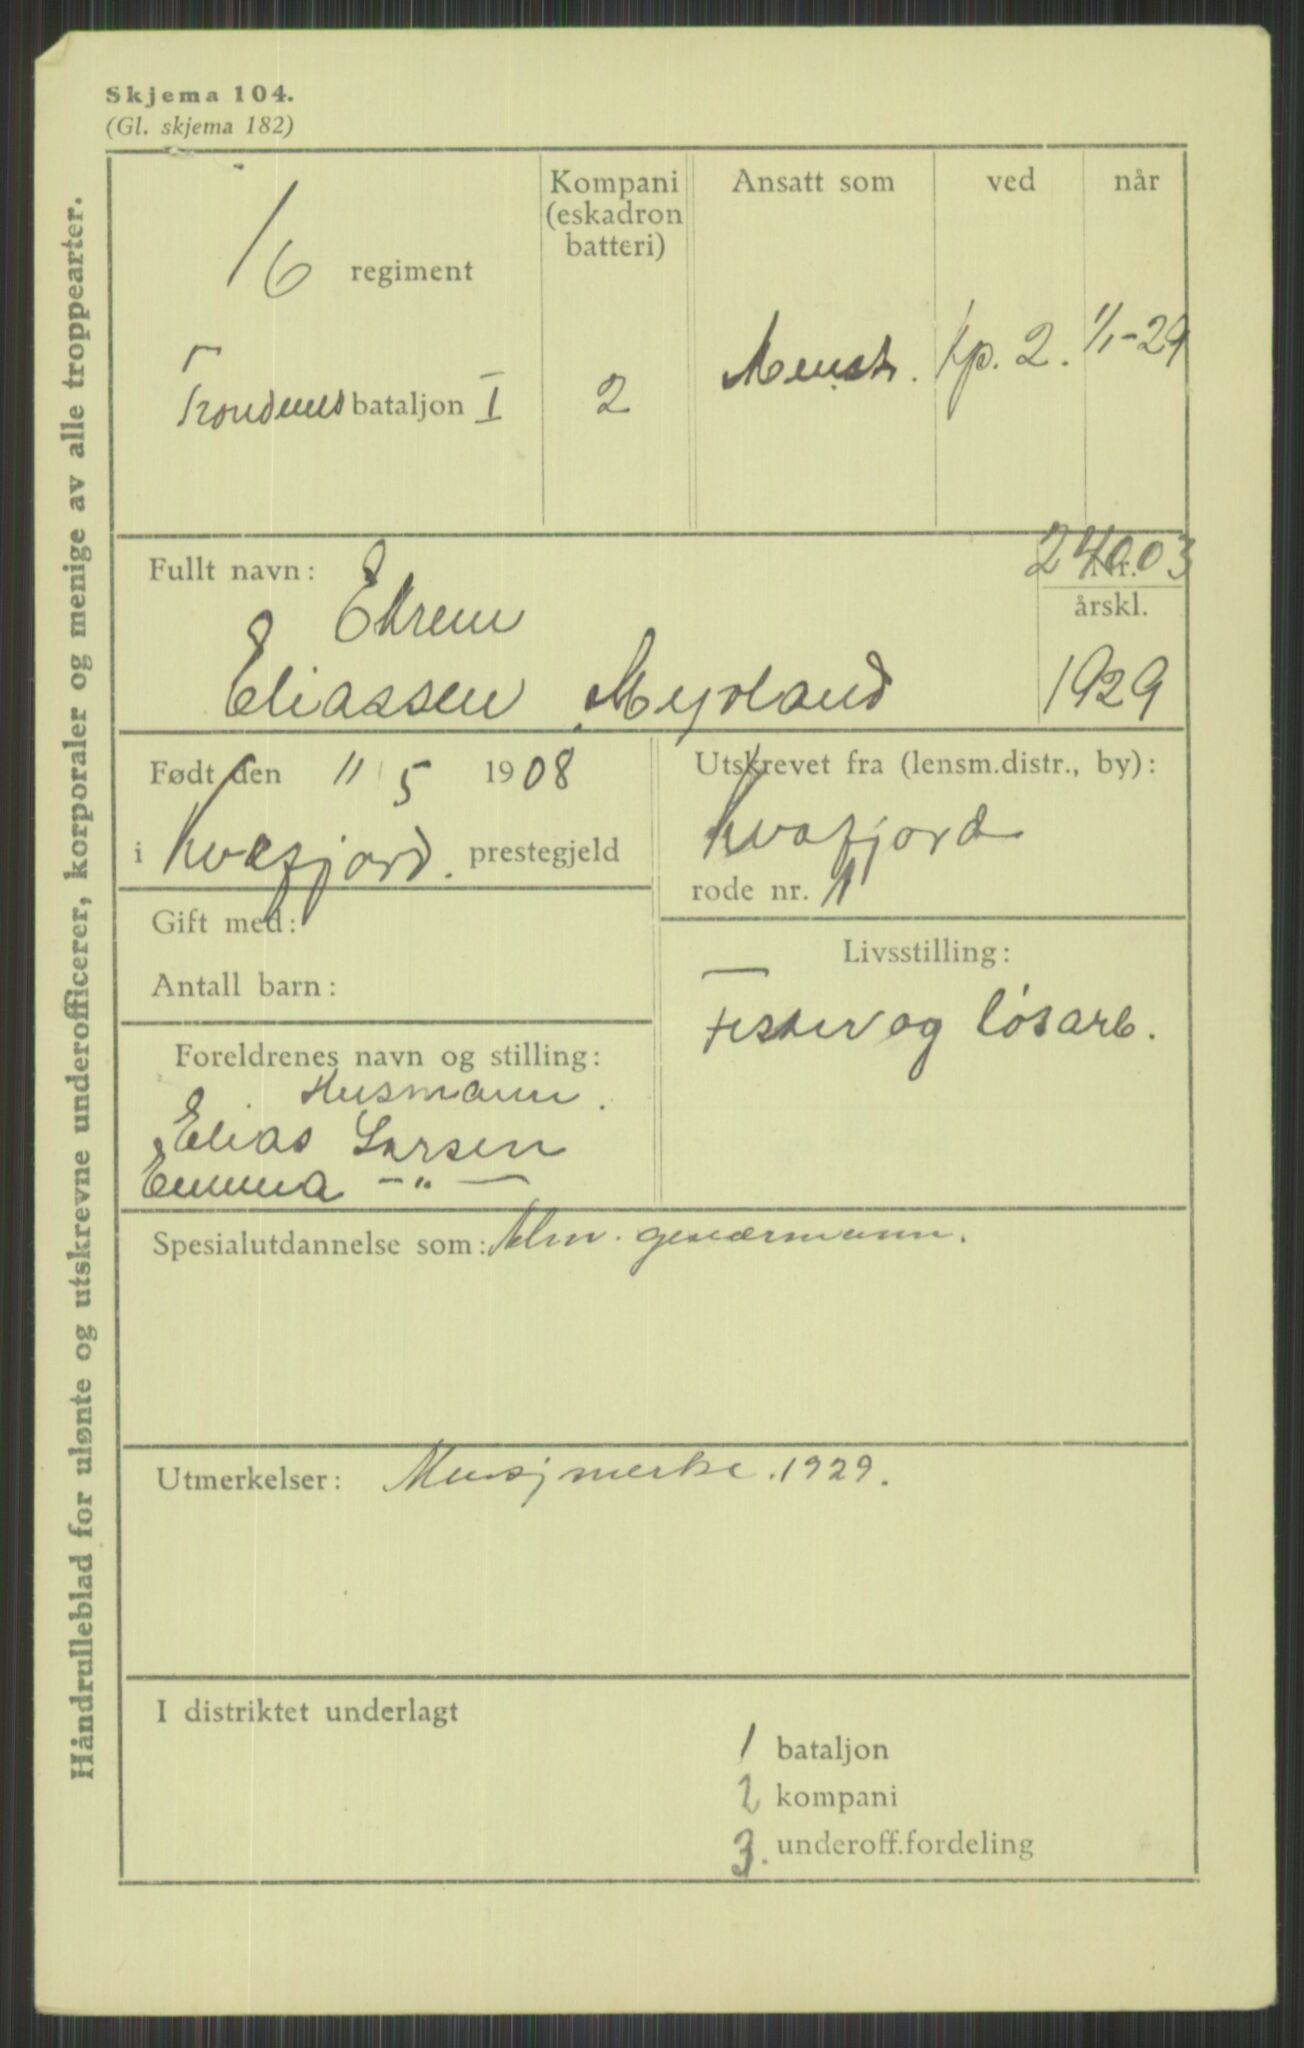 Skjema 104.
(Gl. skjema 182)
Håndrulleblad for ulønte og utskrevne underofficerer, korporaler og menige av alle troppearter.
Kompani (eskadron batteri)
Ansatt som
ved
når
16 regiment
Trondenes bataljon I
2
Menst. Kp. 2. 1/1-29
Fullt navn:
24003
Nr.
årskl.
1929
Ekrem
Eliassen Myrland
Født den 11 5 1908
i Kvæfjord. prestegjeld
Utskrevet fra (lensm.distr., by):
Kvæfjord
rode nr. 1
Gift med:
Antall barn:
Livsstilling:
Fisker og løsarb.
Foreldrenes navn og stilling:
Husmann.
Elias Larsen
Emma -"-
Spesialutdannelse som: Alm. geværmann.
Utmerkelser: Musj merke. 1929.
I distriktet underlagt
1 bataljon
2 kompani
3. underoff.fordeling